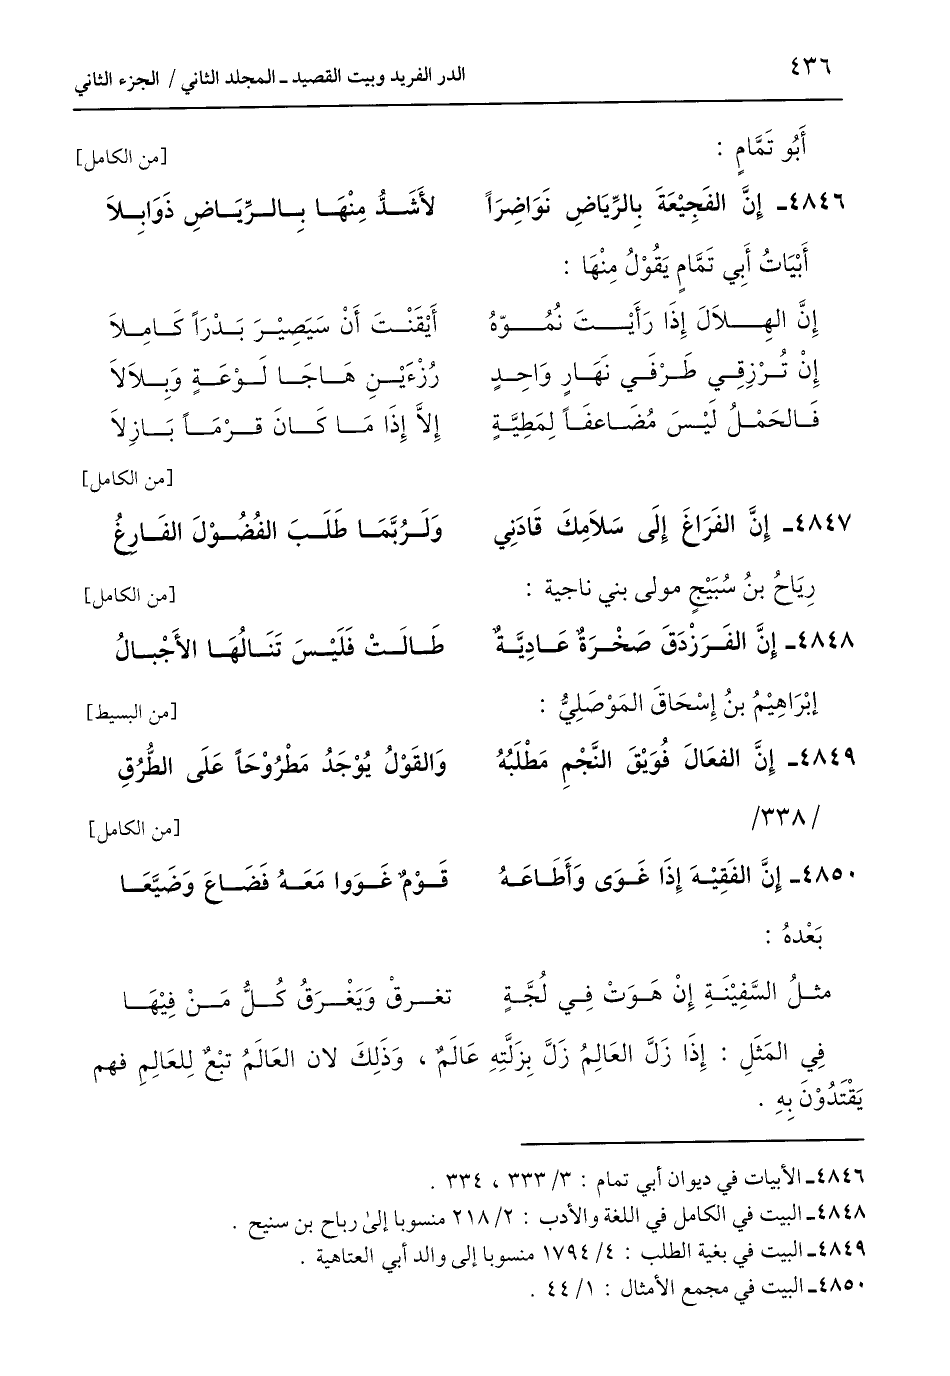 ٤٣٦ الدر الفريد وبيت القصيد ـ المجلد الثاني / الجزء الثاني
أَبُو تَمَّامٍ : [من الكامل]
٤٨٤٦ـ إِنَّ الفَجِيْعَةَ بِالرِّيَاضِ نَوَاضِرَاً لأَشَدُّ مِنْهَا بِالرِّيَاضِ ذَوَابِلاَ
أَبْيَاتُ أَبِي تَمَّامٍ يَقُوْلُ مِنْهَا :
إِنَّ الهِلاَلَ إِذَا رَأَيْتَ نُمُوّهُ أَيْقَنْتَ أَنْ سَيَصِيْرَ بَدْرَاً كَامِلاَ
إِنْ تُرْزِقِي طَرْفَي نَهَارٍ وَاحِدٍ رُزْءَيْنِ هَاجَا لَوْعَةٍ وَبِلاَلاَ
فَالحَمْلُ لَيْسَ مُضَاعفَاً لِمَطِيَّةٍ إِلاَّ إِذَا مَا كَانَ قرْمَاً بَازِلاَ
[من الكامل]
٤٨٤٧ـ إِنَّ الفَرَاغَ إِلَى سَلاَمِكَ قَادَنِي وَلَرُبَّمَا طَلَبَ الفُضُوْلَ الفَارِغُ
رِيَاحُ بنُ سُبَيْجٍ مولى بني ناجية : [من الكامل]
٤٨٤٨ـ إِنَّ الفَرَزْدَقَ صَخْرَةٌ عَادِيَّةٌ طَالَتْ فَلَيْسَ تَنَالُهَا الأَجْبَالُ
إبْرَاهِيْمُ بنُ إِسْحَاقَ المَوْصَلِيُّ : [من البسيط]
٤٨٤٩ـ إِنَّ الفعَالَ فُوَيْقَ النَّجْمِ مَطْلَبُهُ وَالقَوْلُ يُوْجَدُ مَطْرُوْحَاً عَلَى الطُّرُقِ
/٣٣٨/ [من الكامل]
٤٨٥٠ـ إِنَّ الفَقِيْهَ إِذَا غَوَى وَأَطَاعَهُ قَوْمٌ غَوَوا مَعَهُ فَضَاعَ وَضَيَّعَا
بَعْدهُ :
مثلُ السَّفِيْنَةِ إِنْ هَوَتْ فِي لُجَّةٍ تغرقْ وَيَغْرَقُ كُلُّ مَنْ فِيْهَا
فِي المَثَلِ : إِذَا زَلَّ العَالِمُ زَلَّ بِزَلَّتِهِ عَالَمٌ ، وَذَلِكَ لان العَالَمُ تبْعٌ لِلعَالِمِ فهم
يَقْتَدُوْنَ بِهِ .
٤٨٤٦ـ الأبيات في ديوان أبي تمام : ٣/ ٣٣٣ ، ٣٣٤ .
٤٨٤٨ـ البيت في الكامل في اللغة والأدب : ٢/ ٢١٨ منسوبا إلى رباح بن سنيح .
٤٨٤٩ـ البيت في بغية الطلب : ٤/ ١٧٩٤ منسوبا إلى والد أبي العتاهية .
٤٨٥٠ـ البيت في مجمع الأمثال : ١/ ٤٤ .